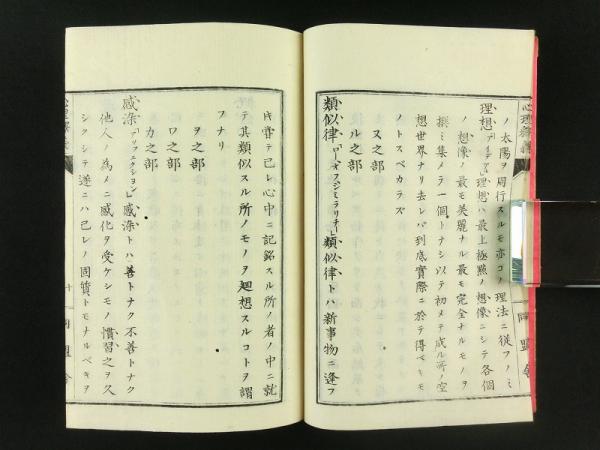 ノ太陽ヲ周行スルモ亦コノ理法ニ從フノミ
理想 理想ハ最上極點ノ想像ニシテ各個
ノ想像ノ最モ美麗ナル最モ完全ナルモノヲ
撰ミ集メテ一個トナシ以テ初メテ成ル所ノ空
想世界ナリ去レバ到底實際ニ於テ得ベキモ
ノトスベカラズ
ヌ之部
ル之部
類似律 類似律トハ新事物ニ逢フ
片嘗テ己レ心中ニ記銘スル所ノ者ノ中ニ就
テ其類似スル所ノモノヲ廻想スルコトヲ謂
フナリ
ヲ之部
ワ之部
カ之部
感染 感染トハ善トナク不善トナク
他人ノ為メニ感化ヲ受ケシモノ慣習之ヲ久
シクシテ遂ニハ己レノ固質トモナルベキヲ
十
同盟舎